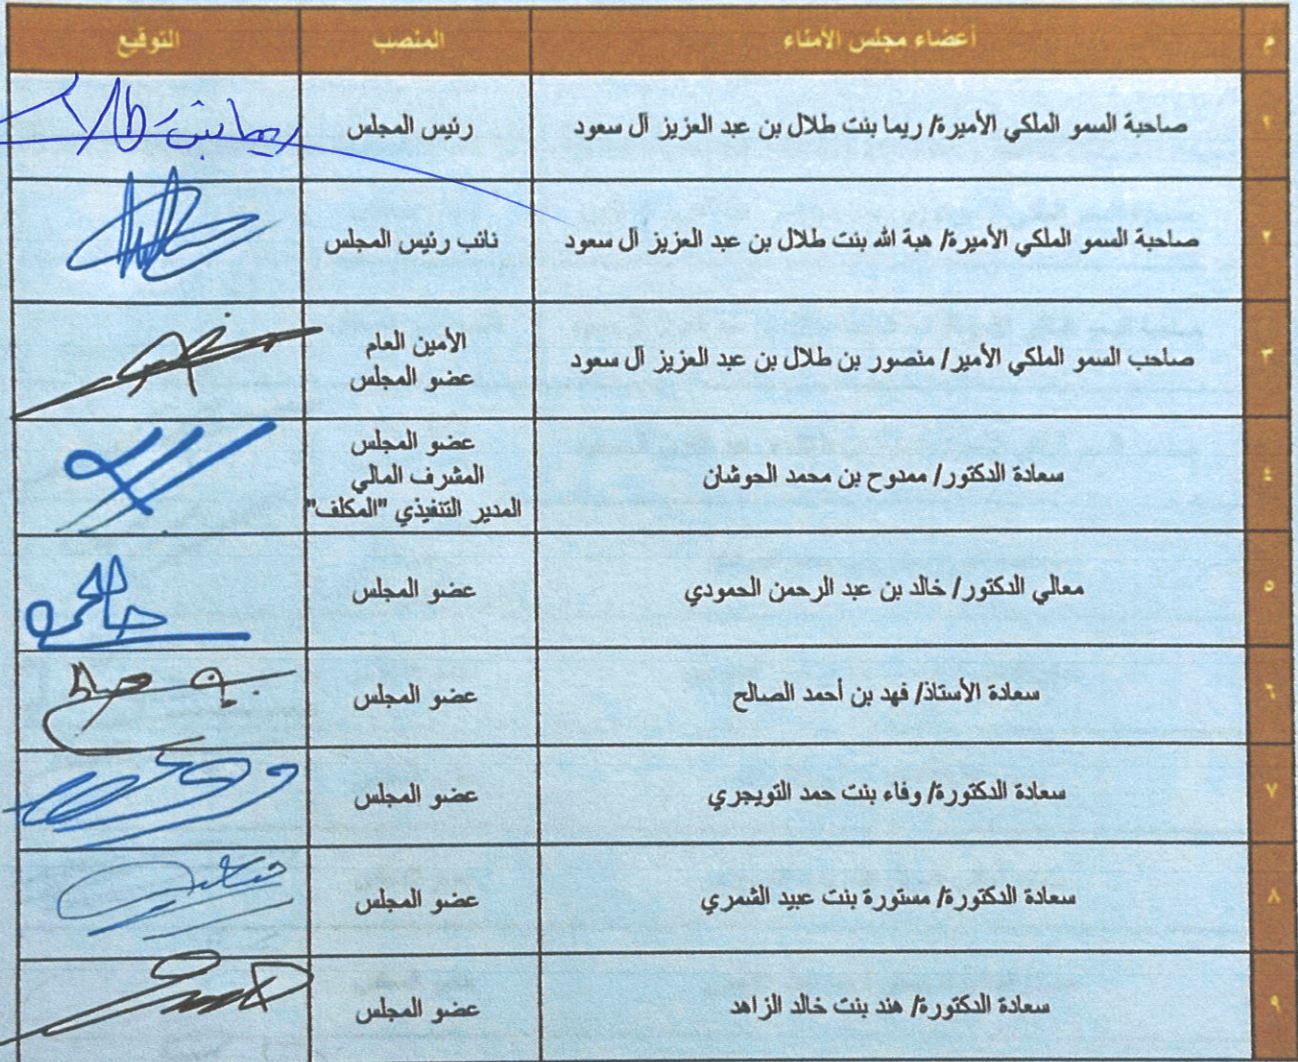 م أعضاء مجلس الأمناء المنصب التوقيع
١ صاحبة السمو الملكي الأميرة/ ريما بنت طلال بن عبد العزيز آل سعود رئيس المجلس ريما بنت طلال
٢ صاحبة السمو الملكي الأميرة/ هبة الله بنت طلال بن عبد العزيز آل سعود نائب رئيس المجلس
٣ صاحب السمو الملكي الأمير/ منصور بن طلال بن عبد العزيز آل سعود الأمين العام
عضو المجلس
٤ سعادة الدكتور/ ممدوح بن محمد الحوشان عضو المجلس
المشرف المالي
المدير التنفيذي "المكلف"
٥ معالي الدكتور/ خالد بن عبد الرحمن الحمودي عضو المجلس
٦ سعادة الأستاذ/ فهد بن أحمد الصالح عضو المجلس
٧ سعادة الدكتورة/ وفاء بنت حمد التويجري عضو المجلس
٨ سعادة الدكتورة/ مستورة بنت عبيد الشمري عضو المجلس
٩ سعادة الدكتورة/ هند بنت خالد الزاهد عضو المجلس